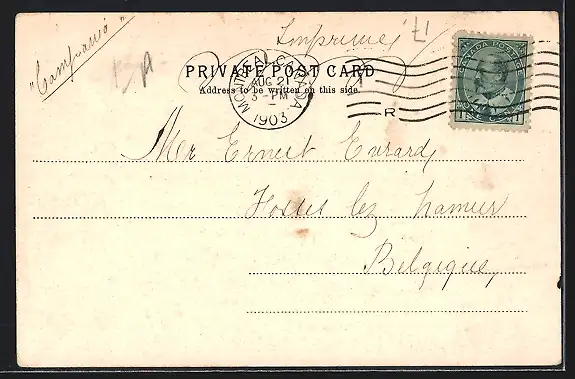 "Campanió"
Imprimé
PRIVATE POST CARD
Address to be written on this side.
MONTREAL CANADA
AUG 21
3 - PM
1903
R
CANADA POSTAGE
Mr Ernest Evrard,
Fosses lez Namur
Belgique,